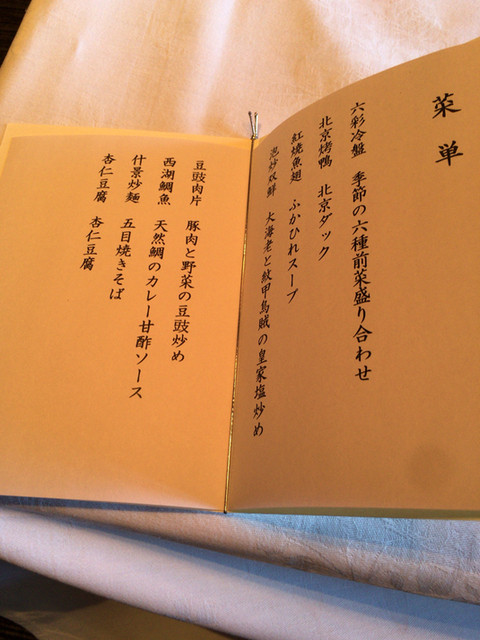 菜単
六彩冷盤 季節の六種前菜盛り合わせ
北京烤鴨 北京ダック
紅焼魚翅 ふかひれスープ
泡炒双鮮 大海老と紋甲烏賊の皇家塩炒め
豆豉肉片 豚肉と野菜の豆豉炒め
西湖鯛魚 天然鯛のカレー甘酢ソース
什景炒麺 五目焼きそば
杏仁豆腐 杏仁豆腐